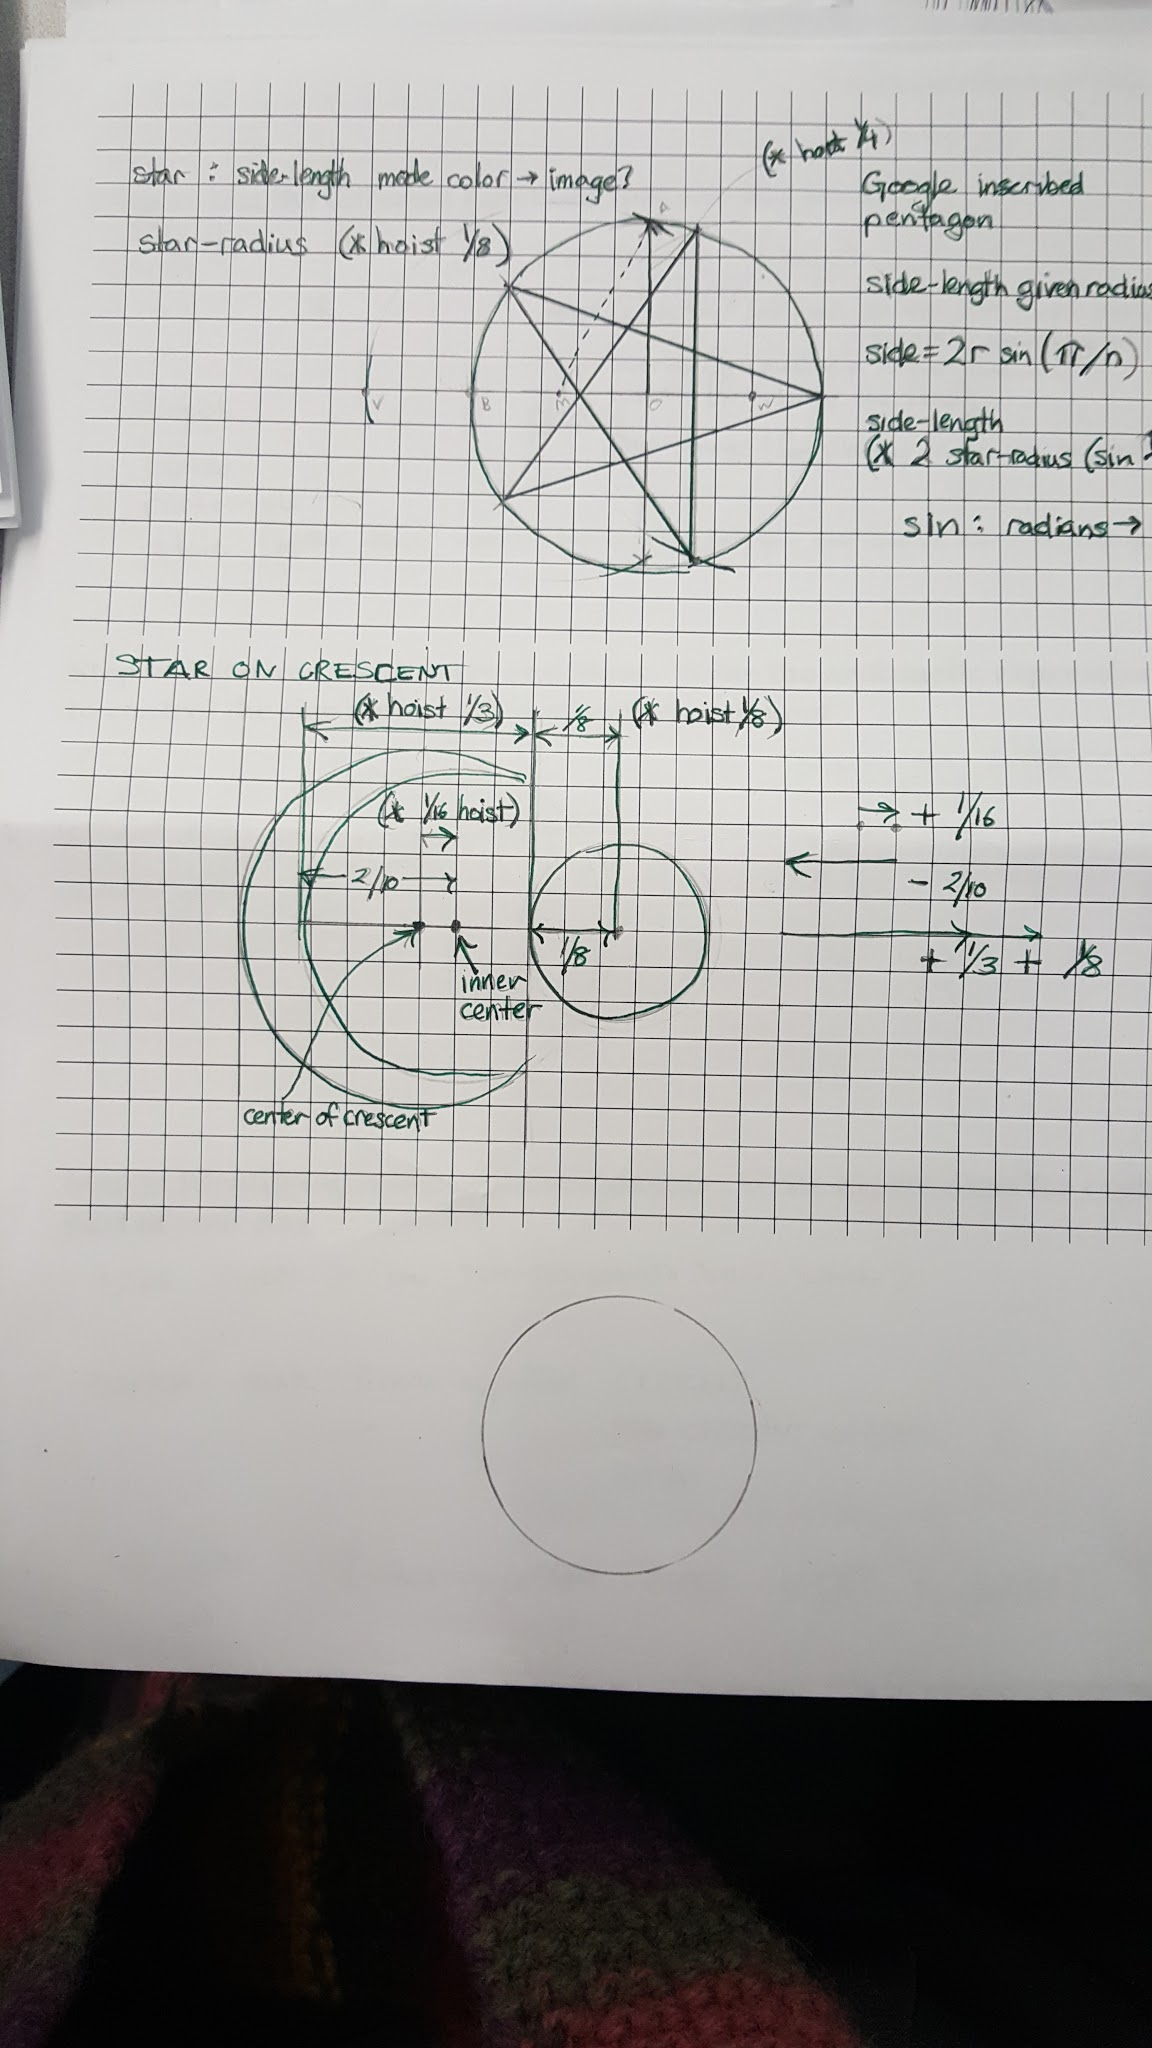 (* hoist 1/4)
star : side-length mode color → image?
star-radius (* hoist 1/8)
Google inscribed
pentagon
side-length given radius
side = 2r sin(π/n)
side-length
(* 2 star-radius (sin
sin : radians →
A
V
B
M
O
W
STAR ON CRESCENT
(* hoist 1/3)
1/8
(* hoist 1/8)
(* 1/16 hoist)
2/10
1/8
inner
center
center of crescent
+ 1/16
- 2/10
+ 1/3 + 1/8